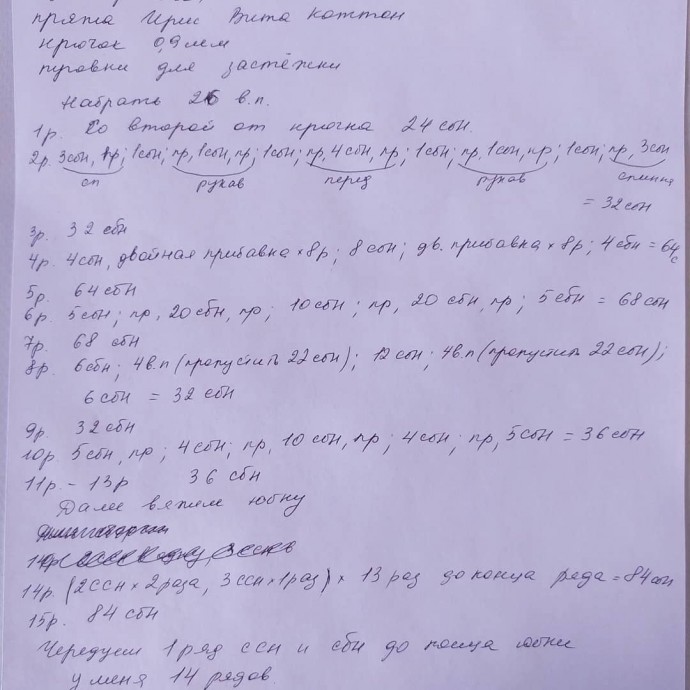 пряжа Ирис Вита Коттон
крючок 0,9 мм
пуговки для застёжки
Набрать 26 в.п.
1р. Со второй от крючка 24 сбн.
2р. 3сбн, пр; 1сбн; пр, 1сбн, пр; 1сбн; пр, 4сбн, пр; 1сбн; пр, 1сбн, пр; 1сбн; пр, 3сбн
сп рукав перед рукав спинка
= 32 сбн
3р. 32 сбн
4р. 4сбн, двойная прибавка × 8р; 8 сбн; дв. прибавка × 8р; 4 сбн = 64с
5р. 64 сбн
6р. 5сбн; пр, 20 сбн, пр; 10 сбн; пр, 20 сбн, пр; 5 сбн = 68 сбн
7р. 68 сбн
8р. 6сбн; 4в.п (пропустить 22 сбн); 12 сбн; 4в.п (пропустить 22 сбн);
6 сбн = 32 сбн
9р. 32 сбн
10р. 5 сбн, пр; 4 сбн; пр, 10 сбн, пр; 4 сбн; пр, 5 сбн = 36 сбн
11р. - 13р 36 сбн
Далее вяжем юбку
14р. (2ссн × 2раза, 3 ссн × 1раз) × 13 раз до конца ряда = 84 сбн
15р. 84 сбн
Чередуем 1 ряд ссн и сбн до конца юбки
у меня 14 рядов.